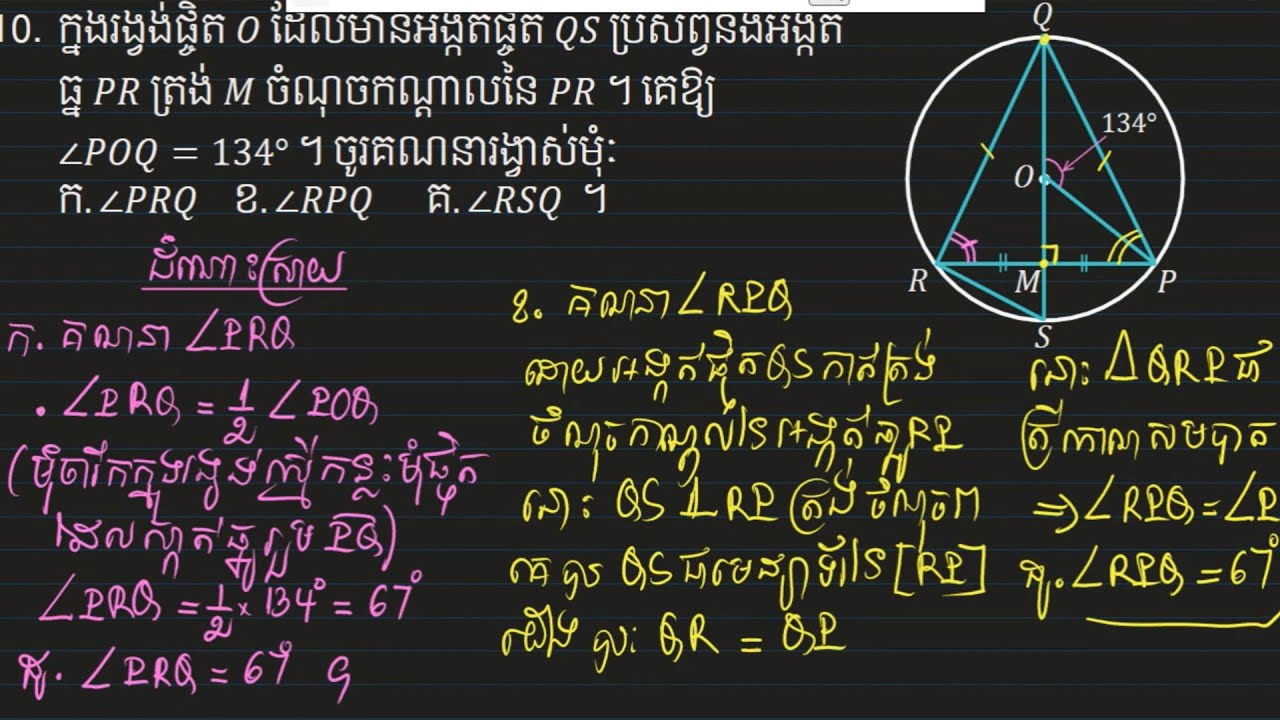 10. ក្នុងរង្វង់ផ្ចិត O ដែលមានអង្កត់ផ្ចិត QS ប្រសព្វនឹងអង្កត់
ធ្នូ PR ត្រង់ M ចំណុចកណ្ដាលនៃ PR ។ គេឱ្យ
∠POQ = 134° ។ ចូរគណនារង្វាស់មុំៈ
ក. ∠PRQ ខ. ∠RPQ គ. ∠RSQ ។
Q
134°
O
R
M
P
S
ដំណោះស្រាយ
ក. គណនា ∠PRQ
. ∠PRQ = 1/2 ∠POQ
(មុំចារឹកក្នុងរង្វង់ស្មើកន្លះមុំផ្ចិត
ដែលស្កាត់ធ្នូរួម PQ)
∠PRQ = 1/2 × 134° = 67°
ដូ. ∠PRQ = 67° ។
ខ. គណនា ∠RPQ
ដោយអង្កត់ផ្ចិត QS កាត់ត្រង់
ចំណុចកណ្ដាលនៃអង្កត់ធ្នូ RP
នោះ QS ⊥ RP ត្រង់ចំណុច
គេបាន QS ជាមេដ្យាទ័រនៃ [RP]
យើងបាន QR = QP
នោះ △QRP ជា
ត្រីកោណសមបាត
⇒ ∠RPQ = ∠P
ដូ. ∠RPQ = 67°